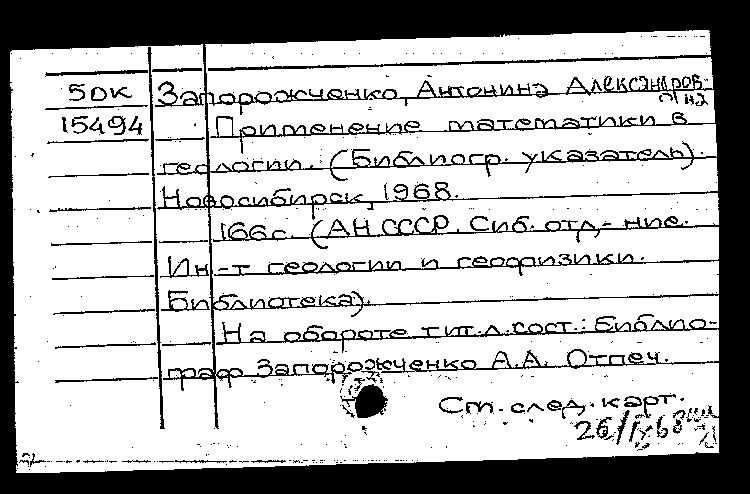 5DK Запорожченко, Антонина Александров-
на
15494 Применение математики в
геологии. (Библиогр. указатель).
Новосибирск, 1968.
166с. (АН СССР. Сиб. отд-ние.
Ин-т геологии и геофизики.
Библиотека).
На обороте тит.л. сост.: Библио-
граф Запорожченко А.А. Отпеч.
См. след. карт.
26/IX68